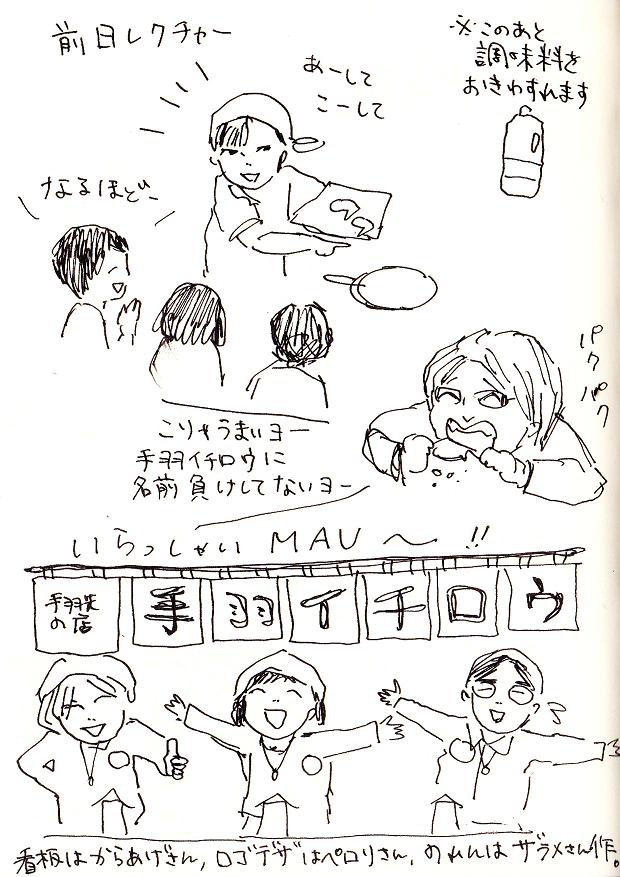 前日レクチャー
※このあと
調味料を
おきわすれます
あーして
こーして
なるほどー
パクパク
こりゃうまいヨー
手羽イチロウに
名前負けしてないヨー
いらっしゃいMAU〜!!
手羽先
の店
手羽イチロウ
看板はからあげさん,ロゴデザはペロリさん,のれんはザラメさん作。